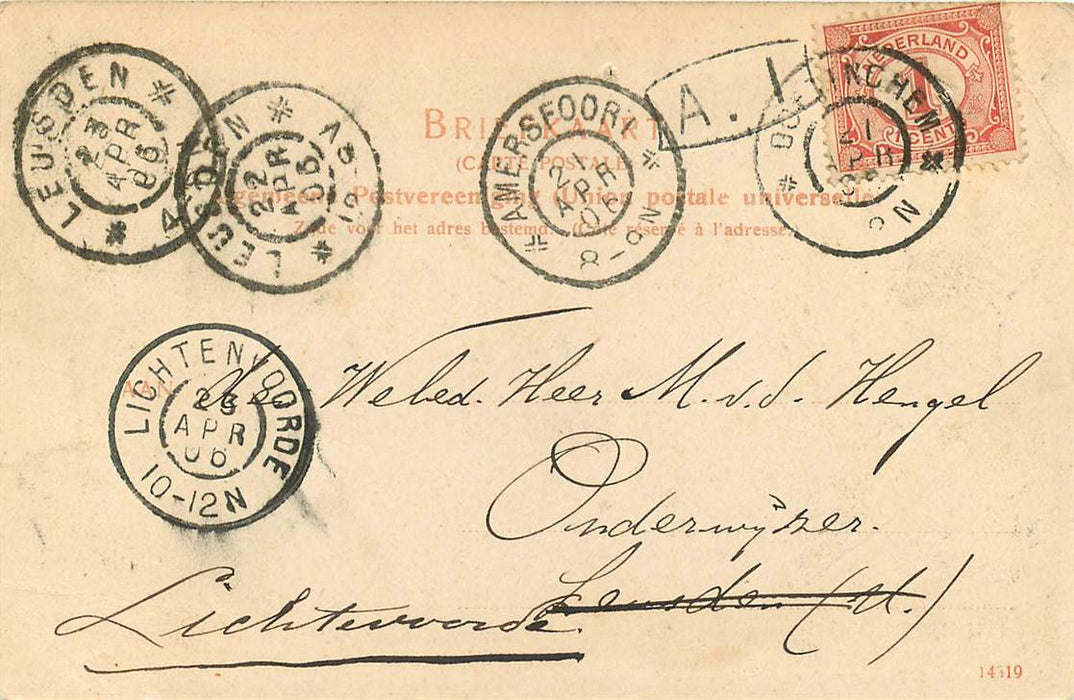 NEDERLAND
1
CENT
A. 1
BRIEFKAART
(CARTE POSTALE)
Algemeene Postvereeniging (Union postale universelle)
Zijde voor het adres bestemd. (Côté réservé à l'adresse.)
LEUSDEN
23
APR
06
LEUSDEN
22
APR
06
AMERSFOORT
21
APR
06
8-9N
DOETINCHEM
21
APR
LICHTENVOORDE
23
APR
06
10-12N
AAN
Weled. Heer M. v. d. Hengel
Onderwijzer.
Leusden (U.)
Lichtenvoorde.
14319